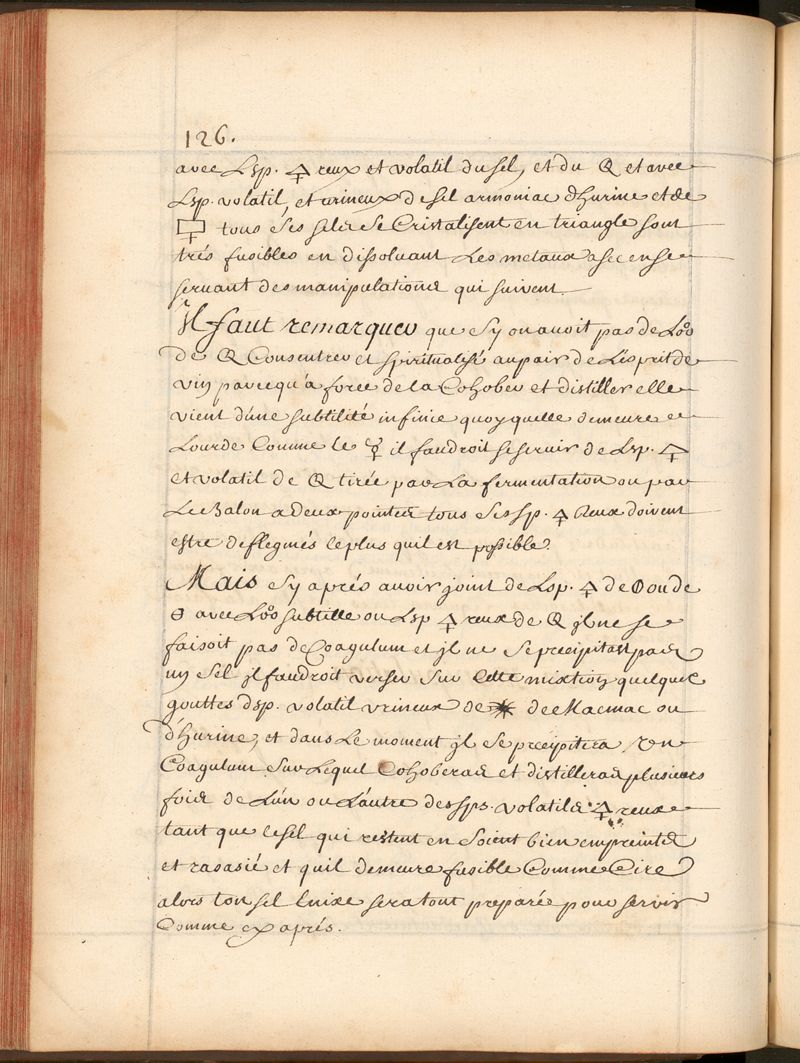 126.
avec Lsp. 🜍 reux et volatil du sel, et du Q et avec
Lsp. volatil, et urineux de sel armoniac d'hurine et de
tous Ses sels Se Cristalisent en triangle sont
trés fusibles en dissoluant Les metaux a se en se
seruant des manipulations qui suivent
Il faut remarquer que sy on auoit pas de L
de Q Consentrer et spiritualisé au pair de L'esprit de
vin parcequ'a force de la Cohober et distiller elle
vient d'une subtilité infinie quoy quelle demeure
Lourde Comme le ☿ il faudroit se seruir de Lsp. 🜍
et volatil de Q tirée par La fermentation ou par
Le Balon a deux pointes tous Ses sp. 🜍 Reux doivent
estre deflegmés le plus quil est possible.
Mais sy aprés auoir joint de Lsp. 🜍 de Φ ou de
Θ avec L subtille ou Lsp 🜍 reux de Q jl ne se
faisoit pas de Coagulum et jl ne Se precipitast pas
un Sel jl faudroit verser Sur Cette mixtion quelque
gouttes d sp. volatil vrineux de ✴ de ou
d'hurine, et dans Le moment jl Se precipitera Un
Coagulum Sur Lequel Cohoberas et distilleras plusieurs
fois de L'un ou L'autre des sps. volatils 🜍 reux
tant que le sel qui restent en Soient bien empreintes
et rasasié et quil demeure fusible Comme Cire
alors ton sel Enixe sera tout preparée pour servir
Comme cy aprés.